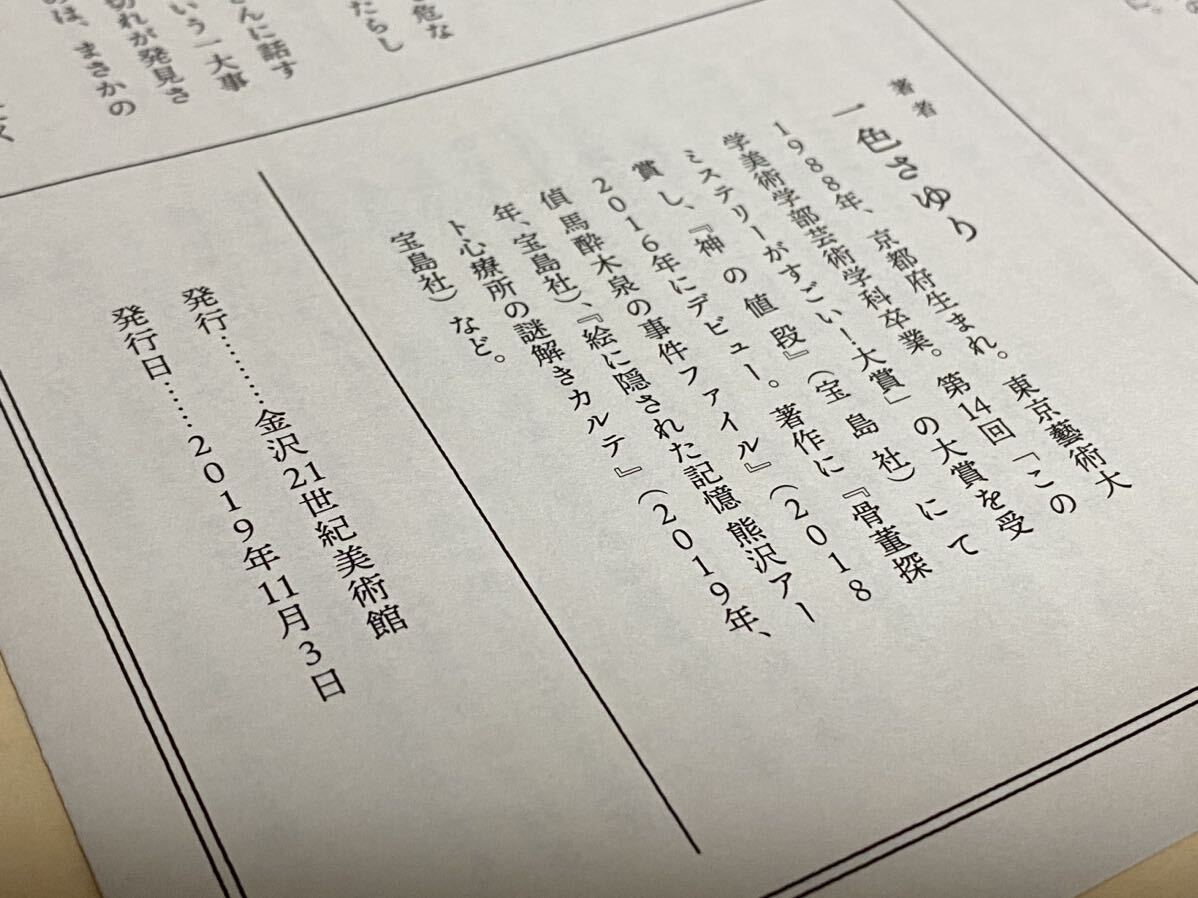 危な
たらし
さんに話す
いう一大事
切れが発見さ
のは、まさかの
著者
一色さゆり
1988年、京都府生まれ。東京藝術大
学美術学部芸術学科卒業。第14回「この
ミステリーがすごい!大賞」の大賞を受
賞し、『神の値段』（宝島社）にて
2016年にデビュー。著作に『骨董探
偵馬酔木泉の事件ファイル』（2018
年、宝島社）、『絵に隠された記憶 熊沢アー
ト心療所の謎解きカルテ』（2019年、
宝島社）など。
発行………金沢21世紀美術館
発行日……2019年11月3日